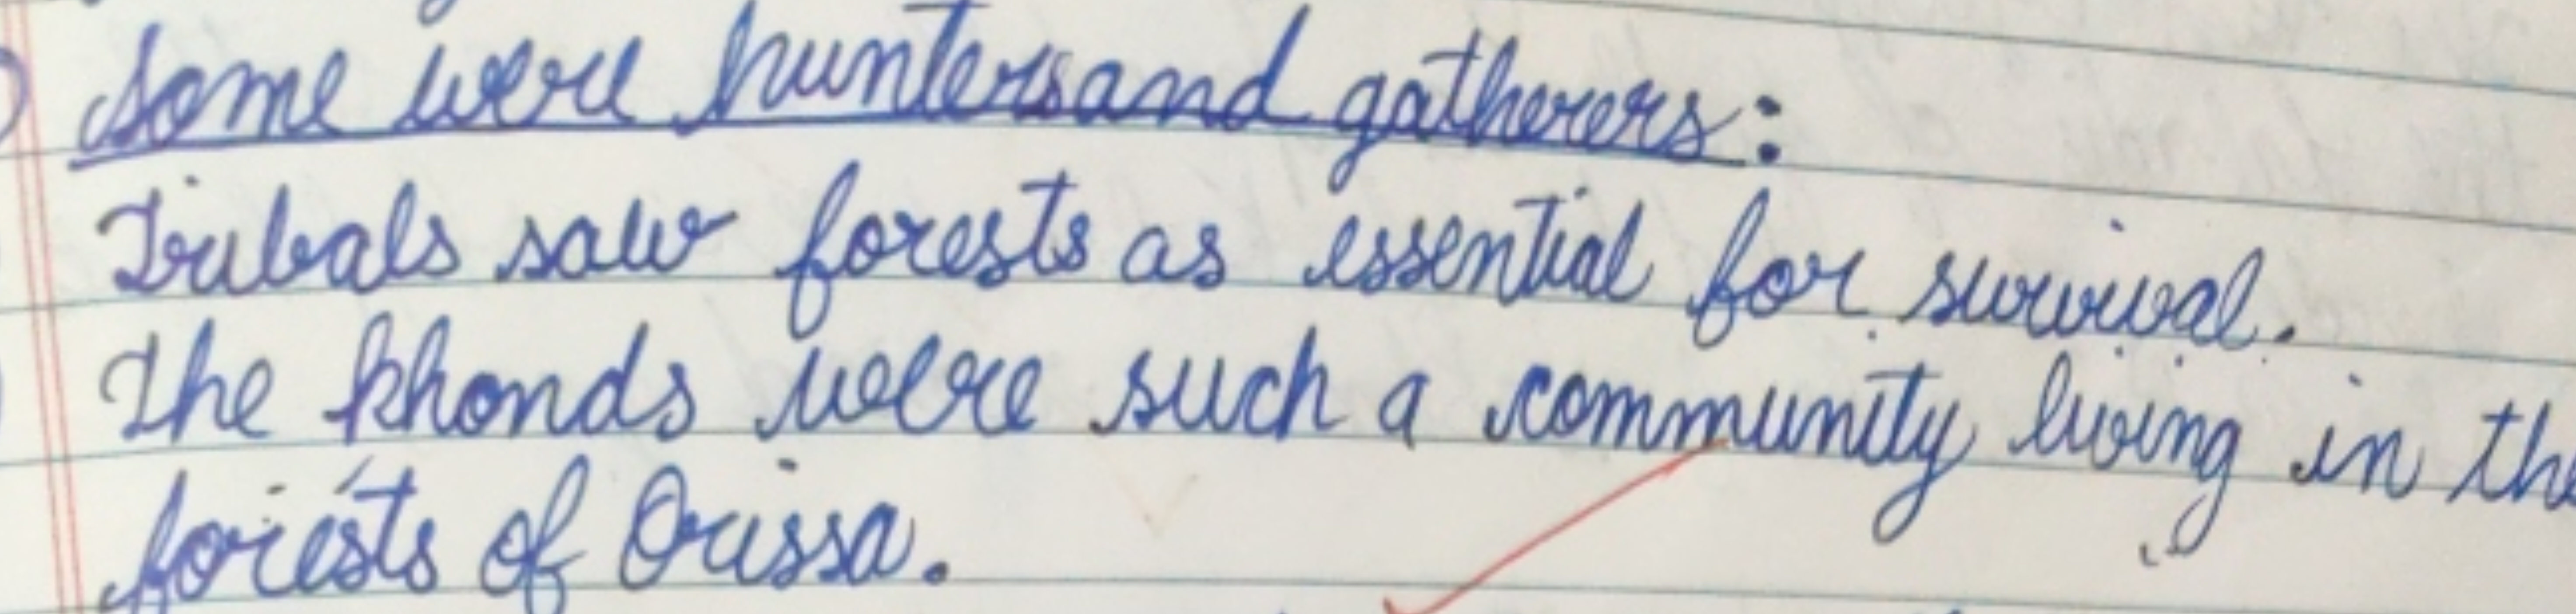 Some were hunters and gatherers:
Tribals saw forests as essential for survival.
The khonds were such a community living in the
forests of Orissa.